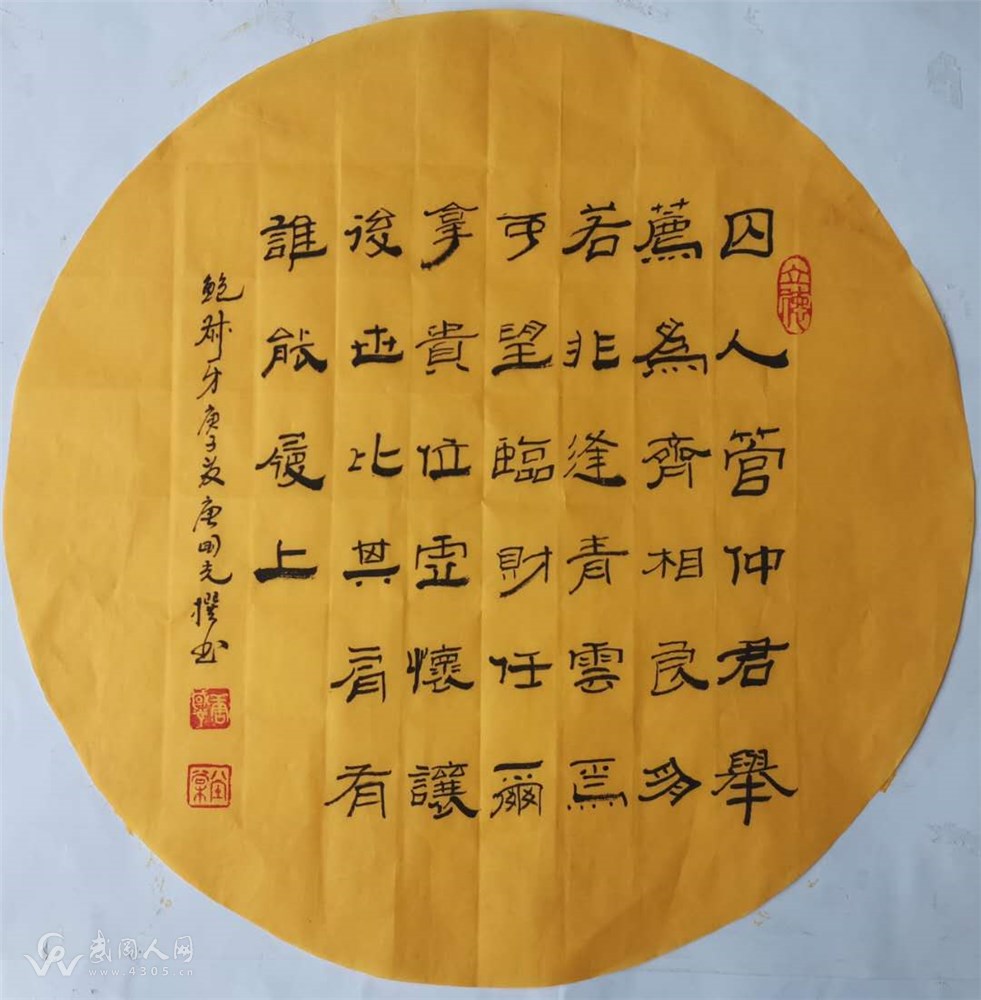 囚人管仲君舉
薦為齊相良多
若非逢青雲焉
可望臨財任爾
拿貴位虛懷讓
後世比其肩有
誰能履上
鮑叔牙庚子夏唐田光撰书
立德
武冈人网
www.4305.cn